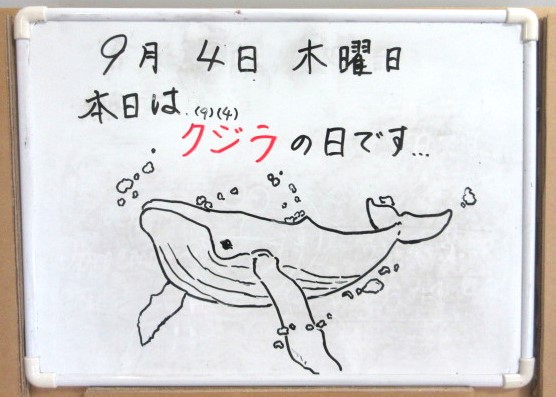 9月 4日 木曜日
本日は
(9)(4)
クジラの日です...